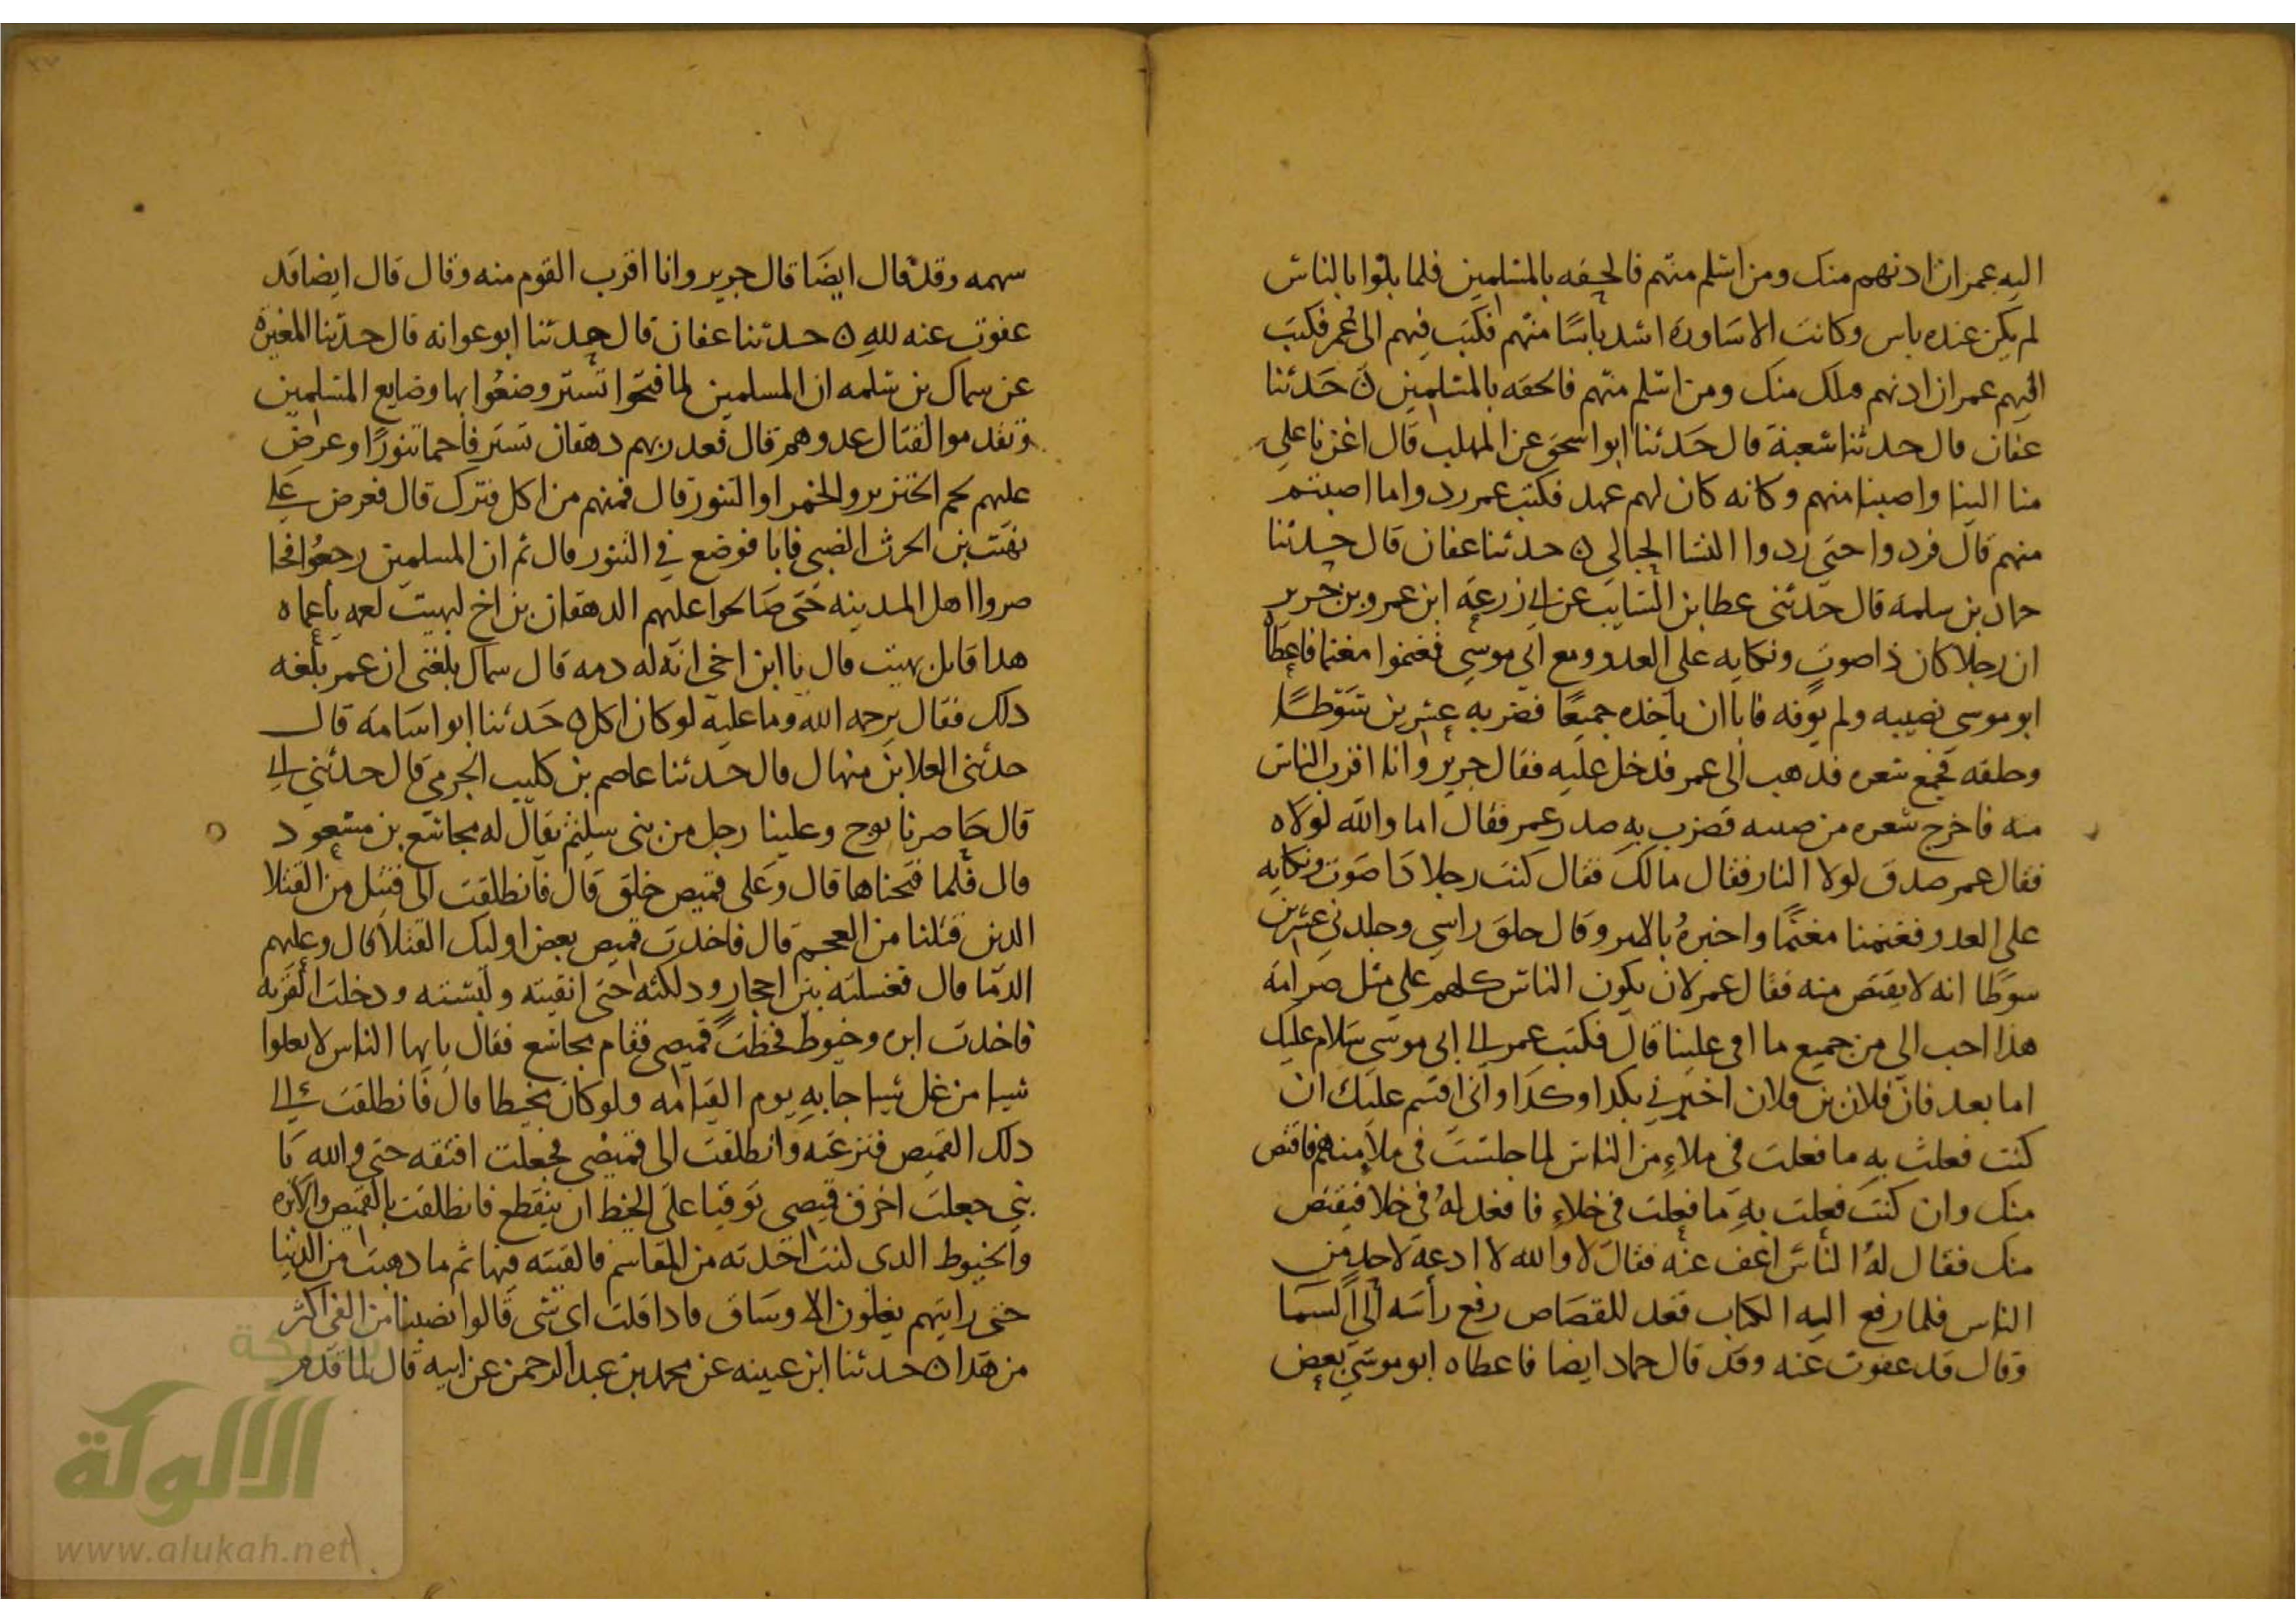 اليه عمر ان ادنهم منك ومن اسلم منهم فالحقه بالمسلمين فلما بلوا بالناس
لم يكن عنده باس وكانت الاساورة اشد باسا منهم فكتب فيهم الى عمر فكتب
فيهم عمر ان ادنهم منك ومن اسلم منهم فالحقه بالمسلمين ن حدثنا
عفان قال حدثنا شعبة قال حدثنا ابو اسحق عن المهلب قال اغرنا على
منا واصبنا منهم وكانه كان لهم عهد فكتب عمر ردوا ما اصبتم
منهم قال فردوا حتى ردوا النسا الحبالى ن حدثنا عفان قال حدثنا
حماد بن سلمة قال حدثنى عطا بن السايب عن ابي زرعة ابن عمرو بن جرير
ان رجلا كان ذا صوت ونكايه على العدو ومع ابي موسى فغنموا مغنما فاعطاه
ابو موسى نصيبه ولم يوفه فابا ان ياخذه جميعا فضربه عشرين سوطا
وحلقه فجمع شعره فذهب الى عمر فدخل عليه فقال جرير وانا اقرب الناس
منه فاخرج شعره من فضرب به صدر عمر فقال اما والله لولاه
فقال عمر صدق لولا النار فقال مالك فقال كنت رجلا ذا صوت ونكايه
على العدو فغنمنا مغنما واخبره بالامر وقال حلق راسي وجلدني عشرين
سوطا انه لا يقتص منه فقال عمر لان يكون الناس كلهم على مثل صرامة
هذا احب الى من جميع ما افى علينا قال فكتب عمر الى ابى موسى سلام عليك
اما بعد فان فلان بن فلان اخبرني بكدا وكدا واني اقسم عليك ان
كنت فعلت به ما فعلت في ملاء من الناس لما جلست في ملا منهم فاقتص
منك وان كنت فعلت به ما فعلت في خلاء فاقعد له في خلا فيقتص
منك فقال له الناس اعف عنه فقال لا والله لا ادعه لاحد من
الناس فلما رفع اليه الكتاب قعد للقصاص رفع رأسه الى السما
وقال قد عفوت عنه وقد قال حماد ايضا فاعطاه ابو موسى بعض
سهمه وقد قال ايضا قال جرير وانا اقرب القوم منه وقال قال ايضا قد
عفوت عنه لله ن حدثنا عفان قال حدثنا ابو عوانه قال حدثنا المغيرة
عن سماك بن سلمه ان المسلمين لما فتحوا تستر وضعوا بها وضايع المسلمين
وتقدموا لقتال عدوهم قال فغدر بهم دهقان تستر فاحما تنورا وعرض
عليهم لحم الخنزير والخمر او التنور قال فمنهم من اكل فترك قال فعرض على
نهيت بن الحرث الضبي فابا فوضع في التنور قال ثم ان المسلمين رجعوا فحا
صروا اهل المدينه حتى صالحوا عليهم الدهقان بن اخ لهيت لعمه يا عماه
هدا قاتل نهيت قال يا ابن اخي ان له دمه قال سماك بلغني ان عمر بلغه
دلك فقال يرحمه الله وما عليه لو كان اكل ن حدثنا ابو اسامة قال
حدثنى العلا بن منهال قال حدثنا عاصم بن كليب الجرمي قال حدثني ابي
قال حاصرنا توج وعلينا رجل من بني سليم يقال له مجاشع بن مسعود
قال فلما فتحناها قال وعلى قميص خلق قال فانطلقت الى قتيل من القتلا
الدين قتلنا من العجم قال فاخدت قميص بعض اوليك القتلا قال وعليهم
الدما قال فغسلته بين احجار ودلكته حتى انقيته ولبسته ودخلت القريه
فاخدت ابره وخيوط فخطت قميصي فقام مجاشع فقال يايها الناس لا تغلوا
شيا من غل شيا جا به يوم القيامه ولو كان مخيطا قال فانطلقت الى
دلك القميص فنزعته وانطلقت الى قميصي فجعلت افتقه حتى والله يا
بني جعلت اخرق قميصي توقيا على الخيط ان ينقطع فانطلقت بالقميص والابره
والخيوط الدى كنت اخدته من المقاسم فالقيته فيها ثم ما دهبت من الدنيا
حتى رايتهم يغلون الاوساق فادا قلت اى شى قالوا نصيبنا من الفى اكثر
من هدا ن حدثنا ابن عيينه عن محمد بن عبد الرحمن عن ابيه قال لما قدم
شبكة
الألوكة
www.alukah.net